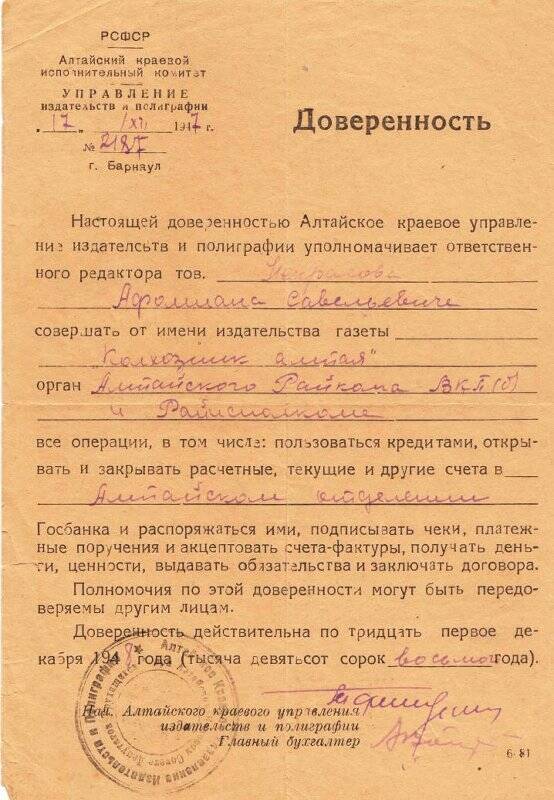 РСФСР
Алтайский краевой
исполнительный комитет
УПРАВЛЕНИЕ
издательств и полиграфии
„17„ /XII 1947 г.
№ 2187
г. Барнаул
Доверенность
Настоящей доверенностью Алтайское краевое управле-
ние издательств и полиграфии уполномачивает ответствен-
ного редактора тов. Некрасова
Савельевича
совершать от имени издательства газеты
„Колхозник алтая"
орган Алтайского Райкома ВКП(б)
и Райисполкома
все операции, в том числе: пользоваться кредитами, откры-
вать и закрывать расчетные, текущие и другие счета в
Алтайском отделении
Госбанка и распоряжаться ими, подписывать чеки, платеж-
ные поручения и акцептовать счета-фактуры, получать день-
ги, ценности, выдавать обязательства и заключать договора.
Полномочия по этой доверенности могут быть передо-
веряемы другим лицам.
Доверенность действительна по тридцать первое де-
кабря 1948 года (тысяча девятьсот сорок восьмого года).
Нач. Алтайского краевого управления
издательств и полиграфии
Главный бухгалтер
6-81